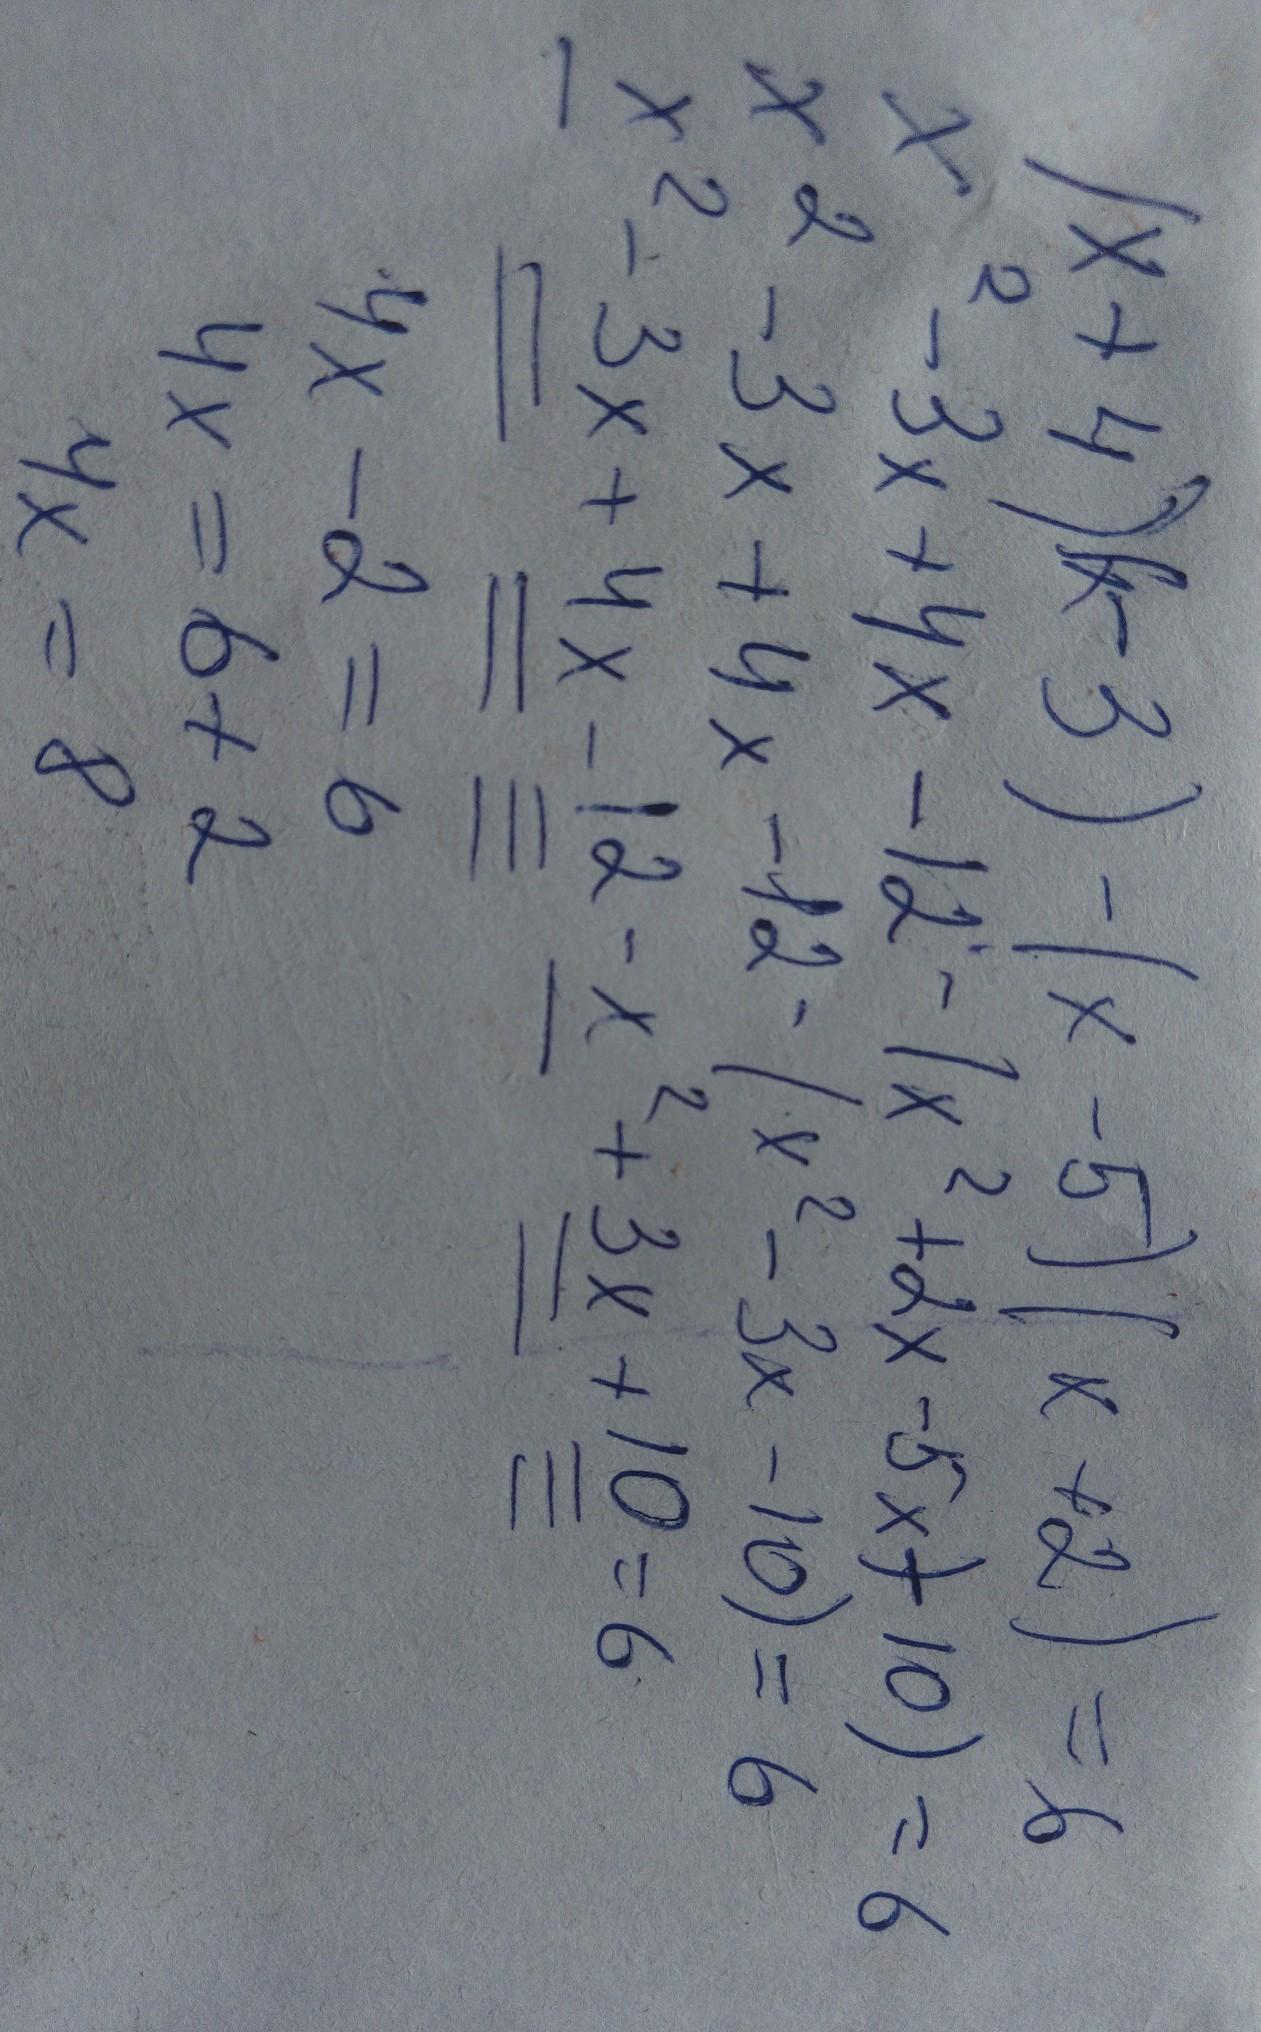 (x+4)(x-3)-(x-5)(x+2)=6
x²-3x+4x-12-(x²+2x-5x+10)=6
x²-3x+4x-12-(x²-3x-10)=6
x²-3x+4x-12-x²+3x+10=6
4x-2=6
4x=6+2
4x=8